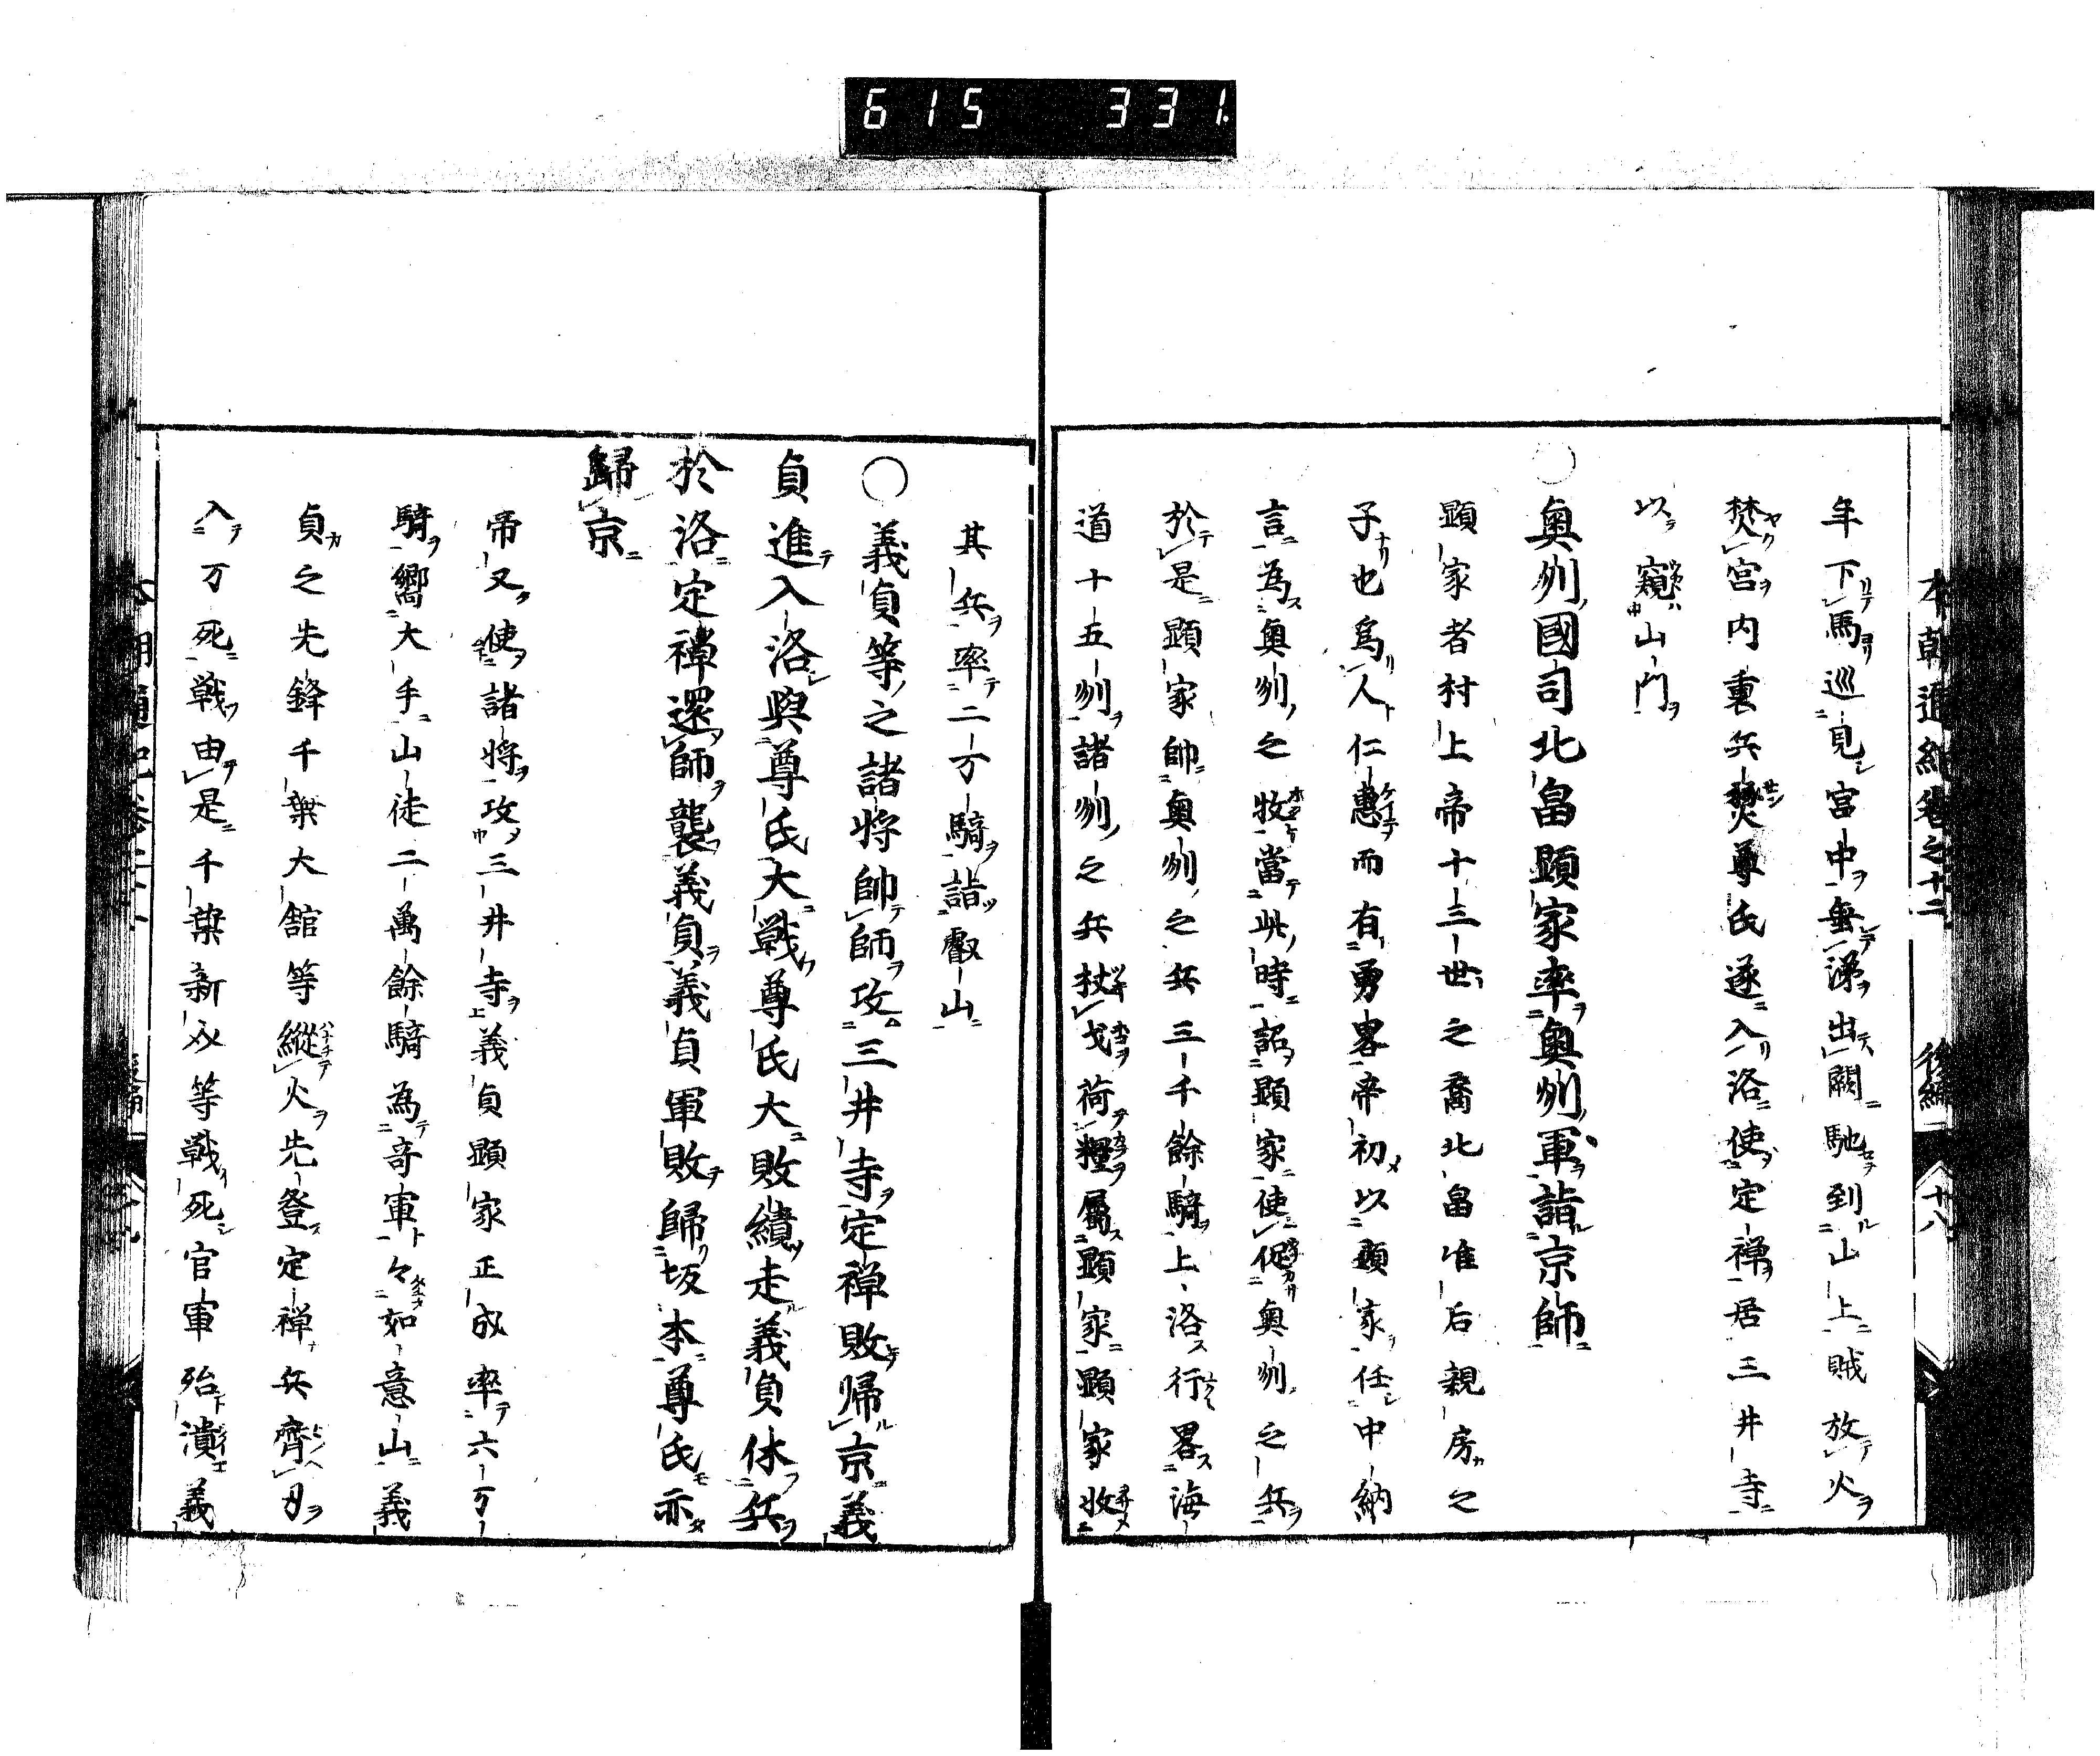 615 331.
本朝通紀卷之十二 後編 十八
年下馬巡見宮中無涕出闕馳到山上賊放火
焚宮内裏兵燹尊氏遂入洛使定禅居三井寺
以窺山門
○奥州國司北畠顕家率奥州軍詣京師
顕家者村上帝十三世之裔北畠准后親房之
子也為人仁惠而有勇畧帝初以顕家任中納
言為奥州之牧當此時詔顕家使促奥州之兵
於是顕家帥奥州之兵三千餘騎上洛行畧海
道十五州諸州之兵杖戈荷糧属顕家顕家收
其兵率二万騎詣叡山
○義貞等之諸将帥師攻三井寺定禅敗帰京義
貞進入洛與尊氏大戦尊氏大敗績走義貞休兵
於洛定禅還師襲義貞義貞軍敗歸坂本尊氏亦
歸京
帝又使諸将攻三井寺義貞顕家正成率六万
騎嚮大手山徒二萬餘騎為奇軍々如意山義
貞之先鋒千葉大舘等縱火先登定禅兵齊刃
入万死戦由是千葉新介等戦死官軍殆潰義